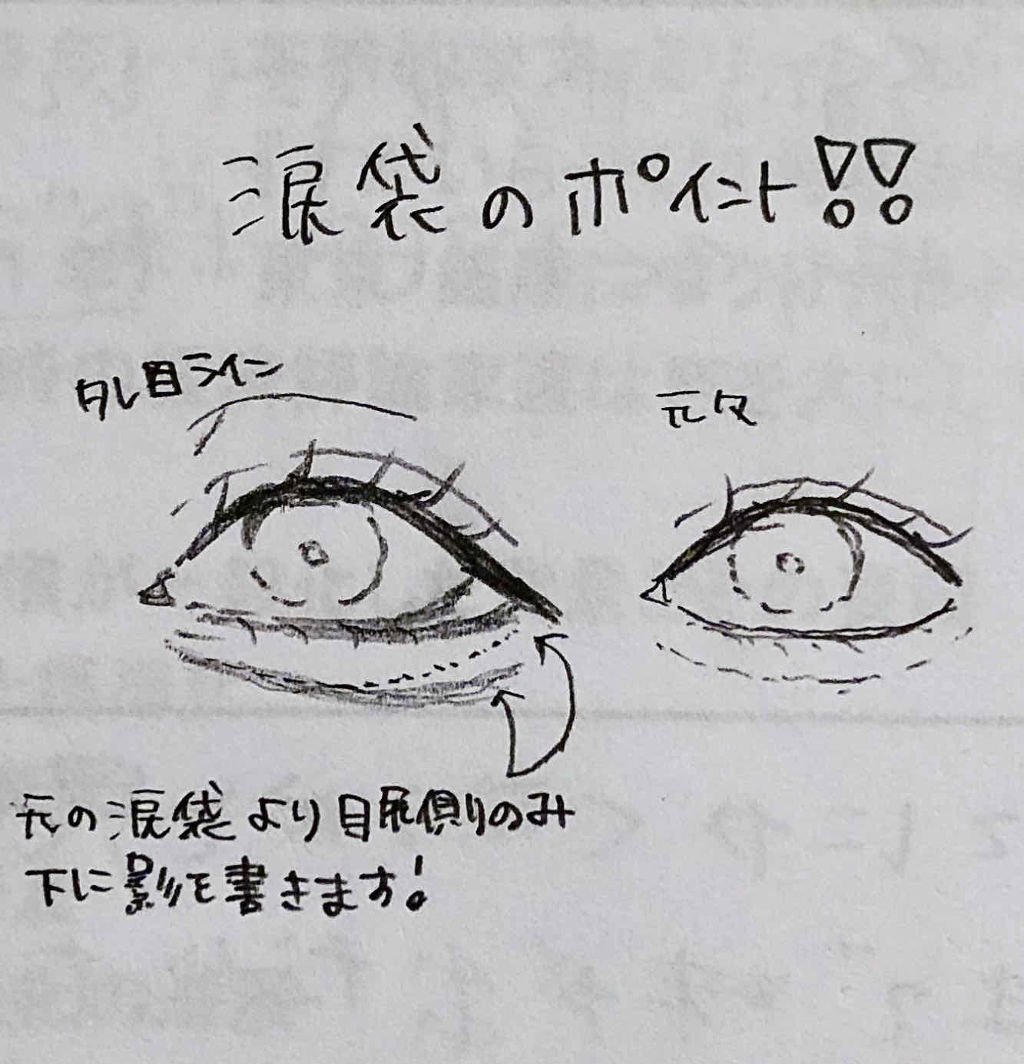 涙袋のポイント!!
タレ目ライン
元々
元の涙袋より目尻側のみ
下に影を書きます!